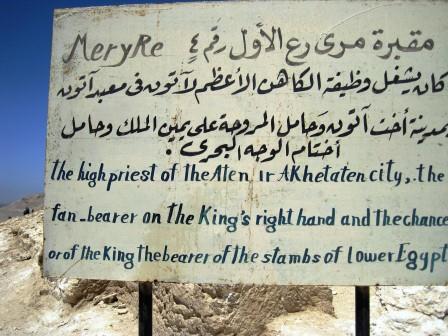 MeryRe مقبرة مرى رع الأول رقم ٤
كان يشغل وظيفة الكاهن الأعظم لآتون فى معبد آتون
بمدينة أخت آتون وحامل المروحة على يمين الملك وحامل
أختام الوجه البحرى .
the high priest of the Aten ir AKhetaten city,. the
fan_bearer on the King's right hand and the chance
or of the King the bearer of the stambs of lower Egypt